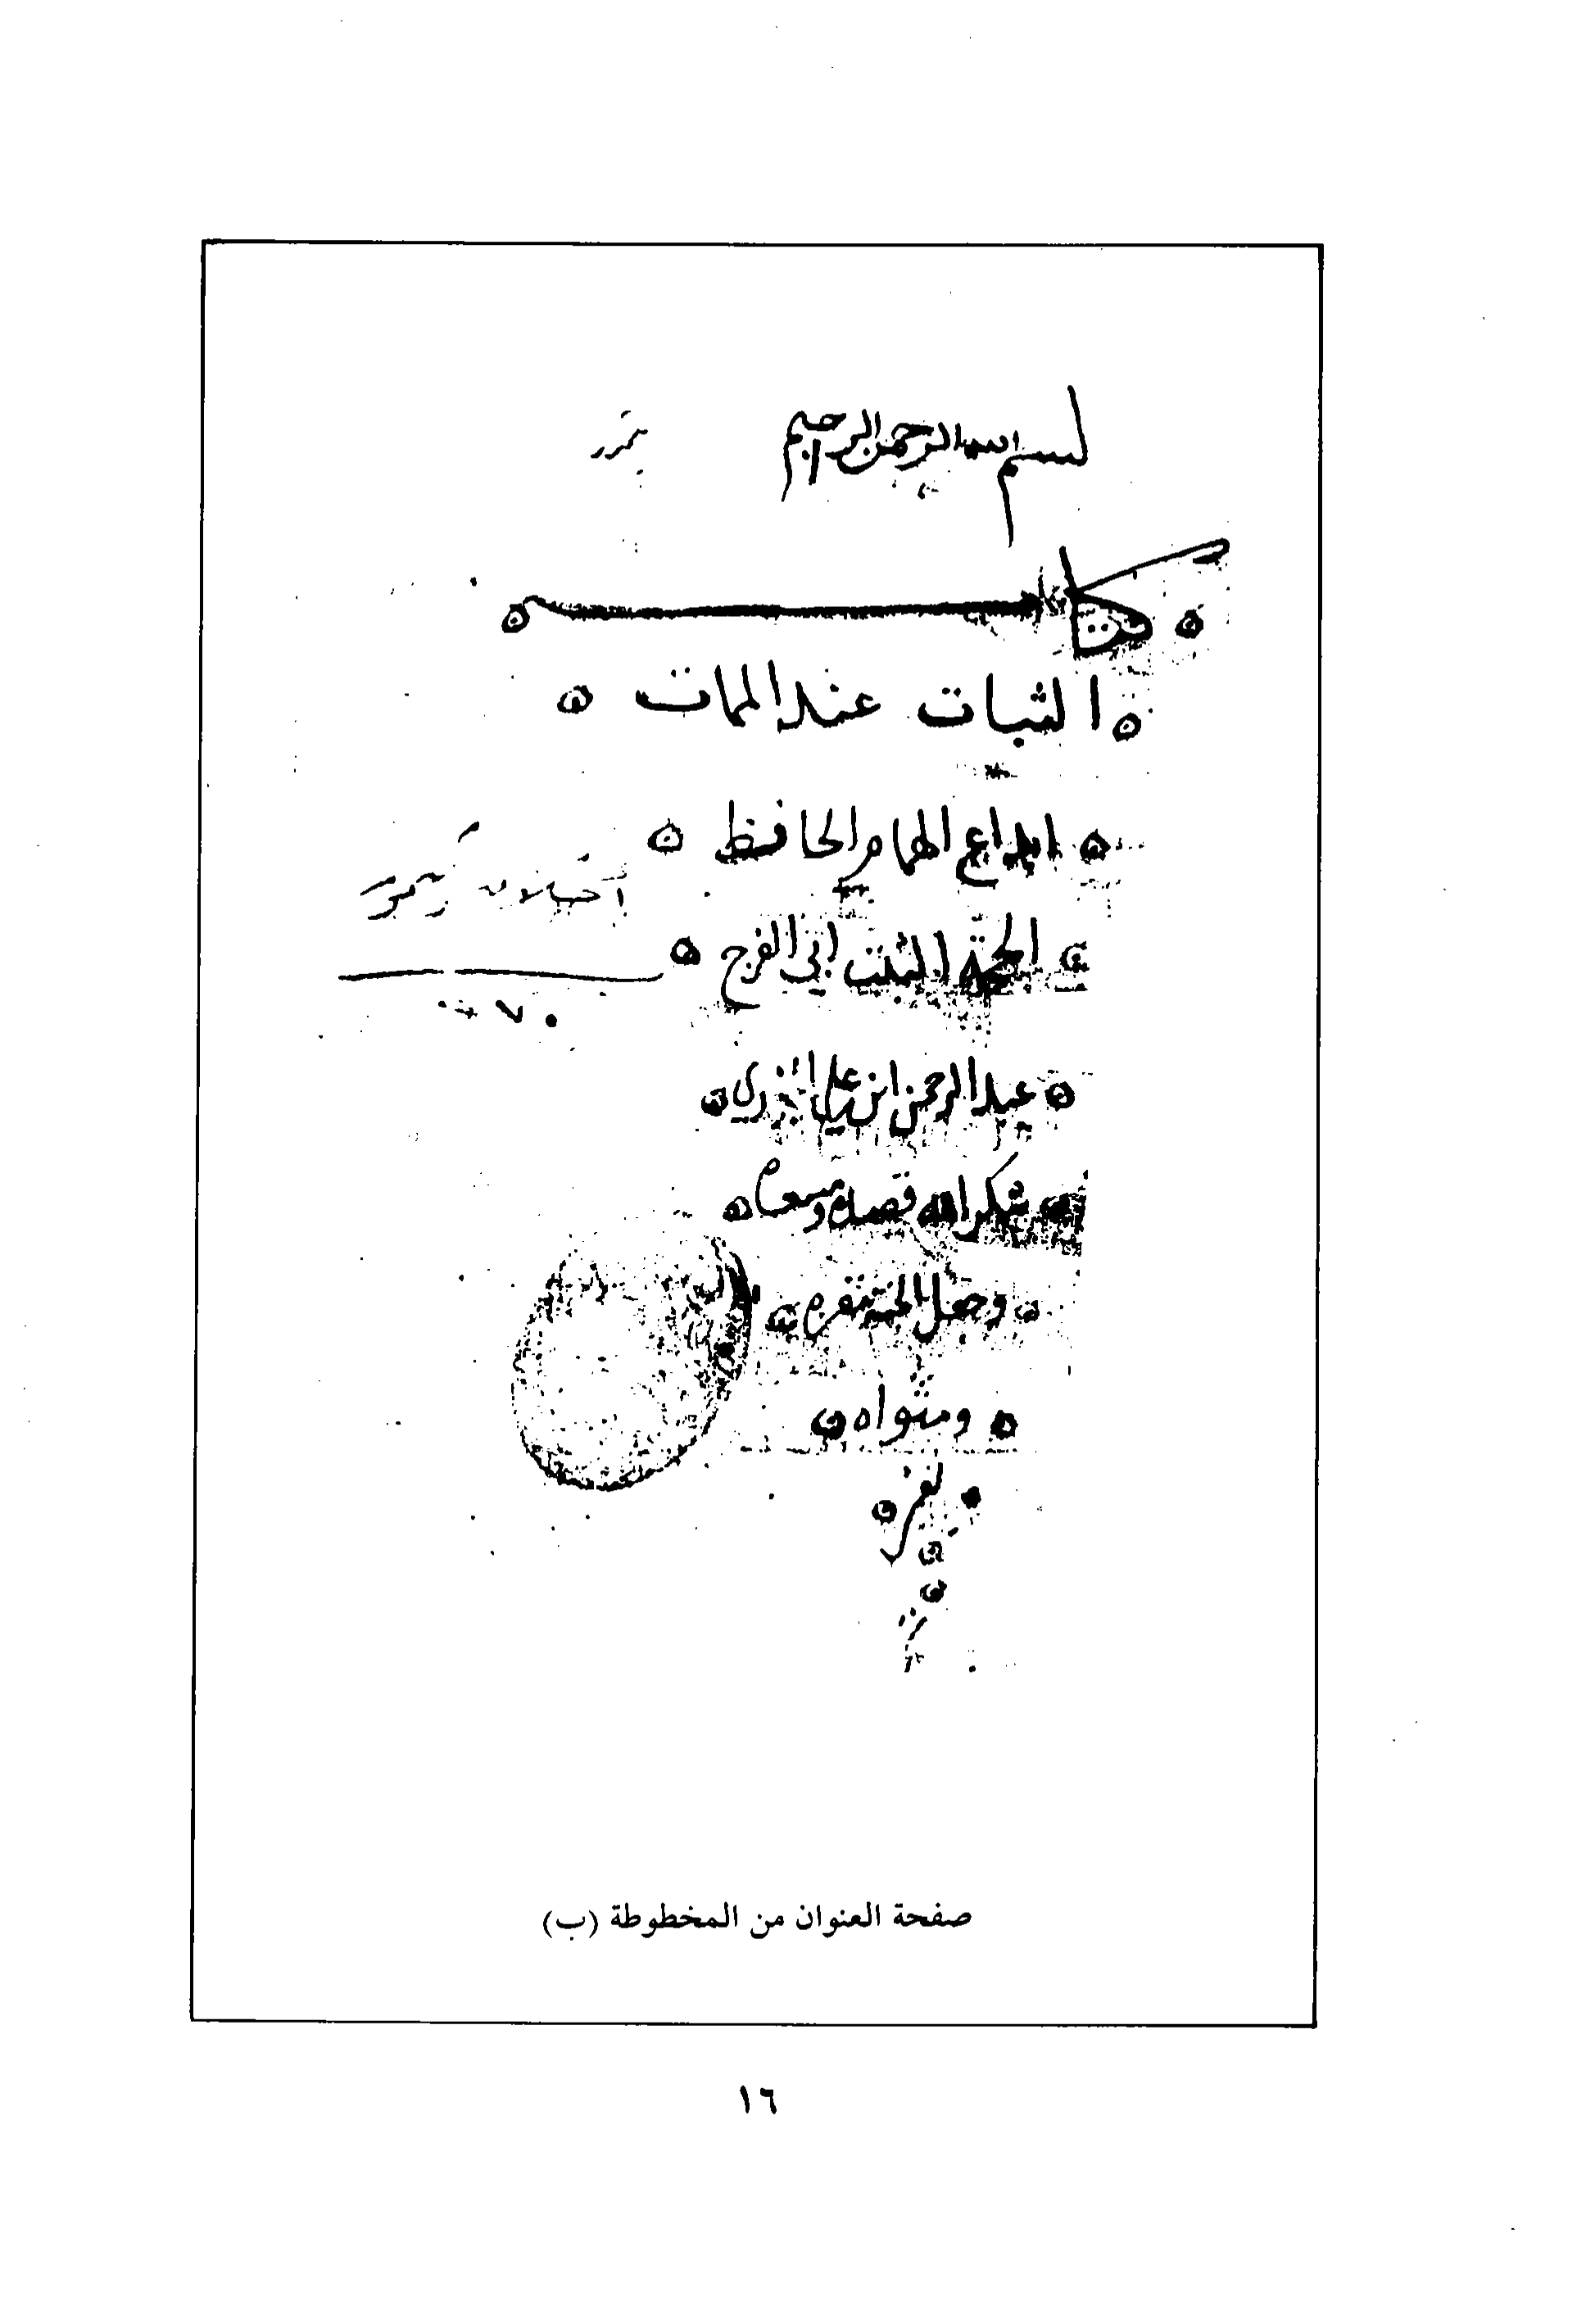 بسم الله الرحمن الرحيم
كتاب
الثبات عند الممات
ابداع الهمام الحافظ
الحجة الثبت ابي الفرج
عبد الرحمن ابن علي الجوزي
شكر الله قصده ومسعاه
وجعل الجنة مقره
ومثواه
اخلاق تيمور
٧٠
صفحة العنوان من المخطوطة (ب)
١٦